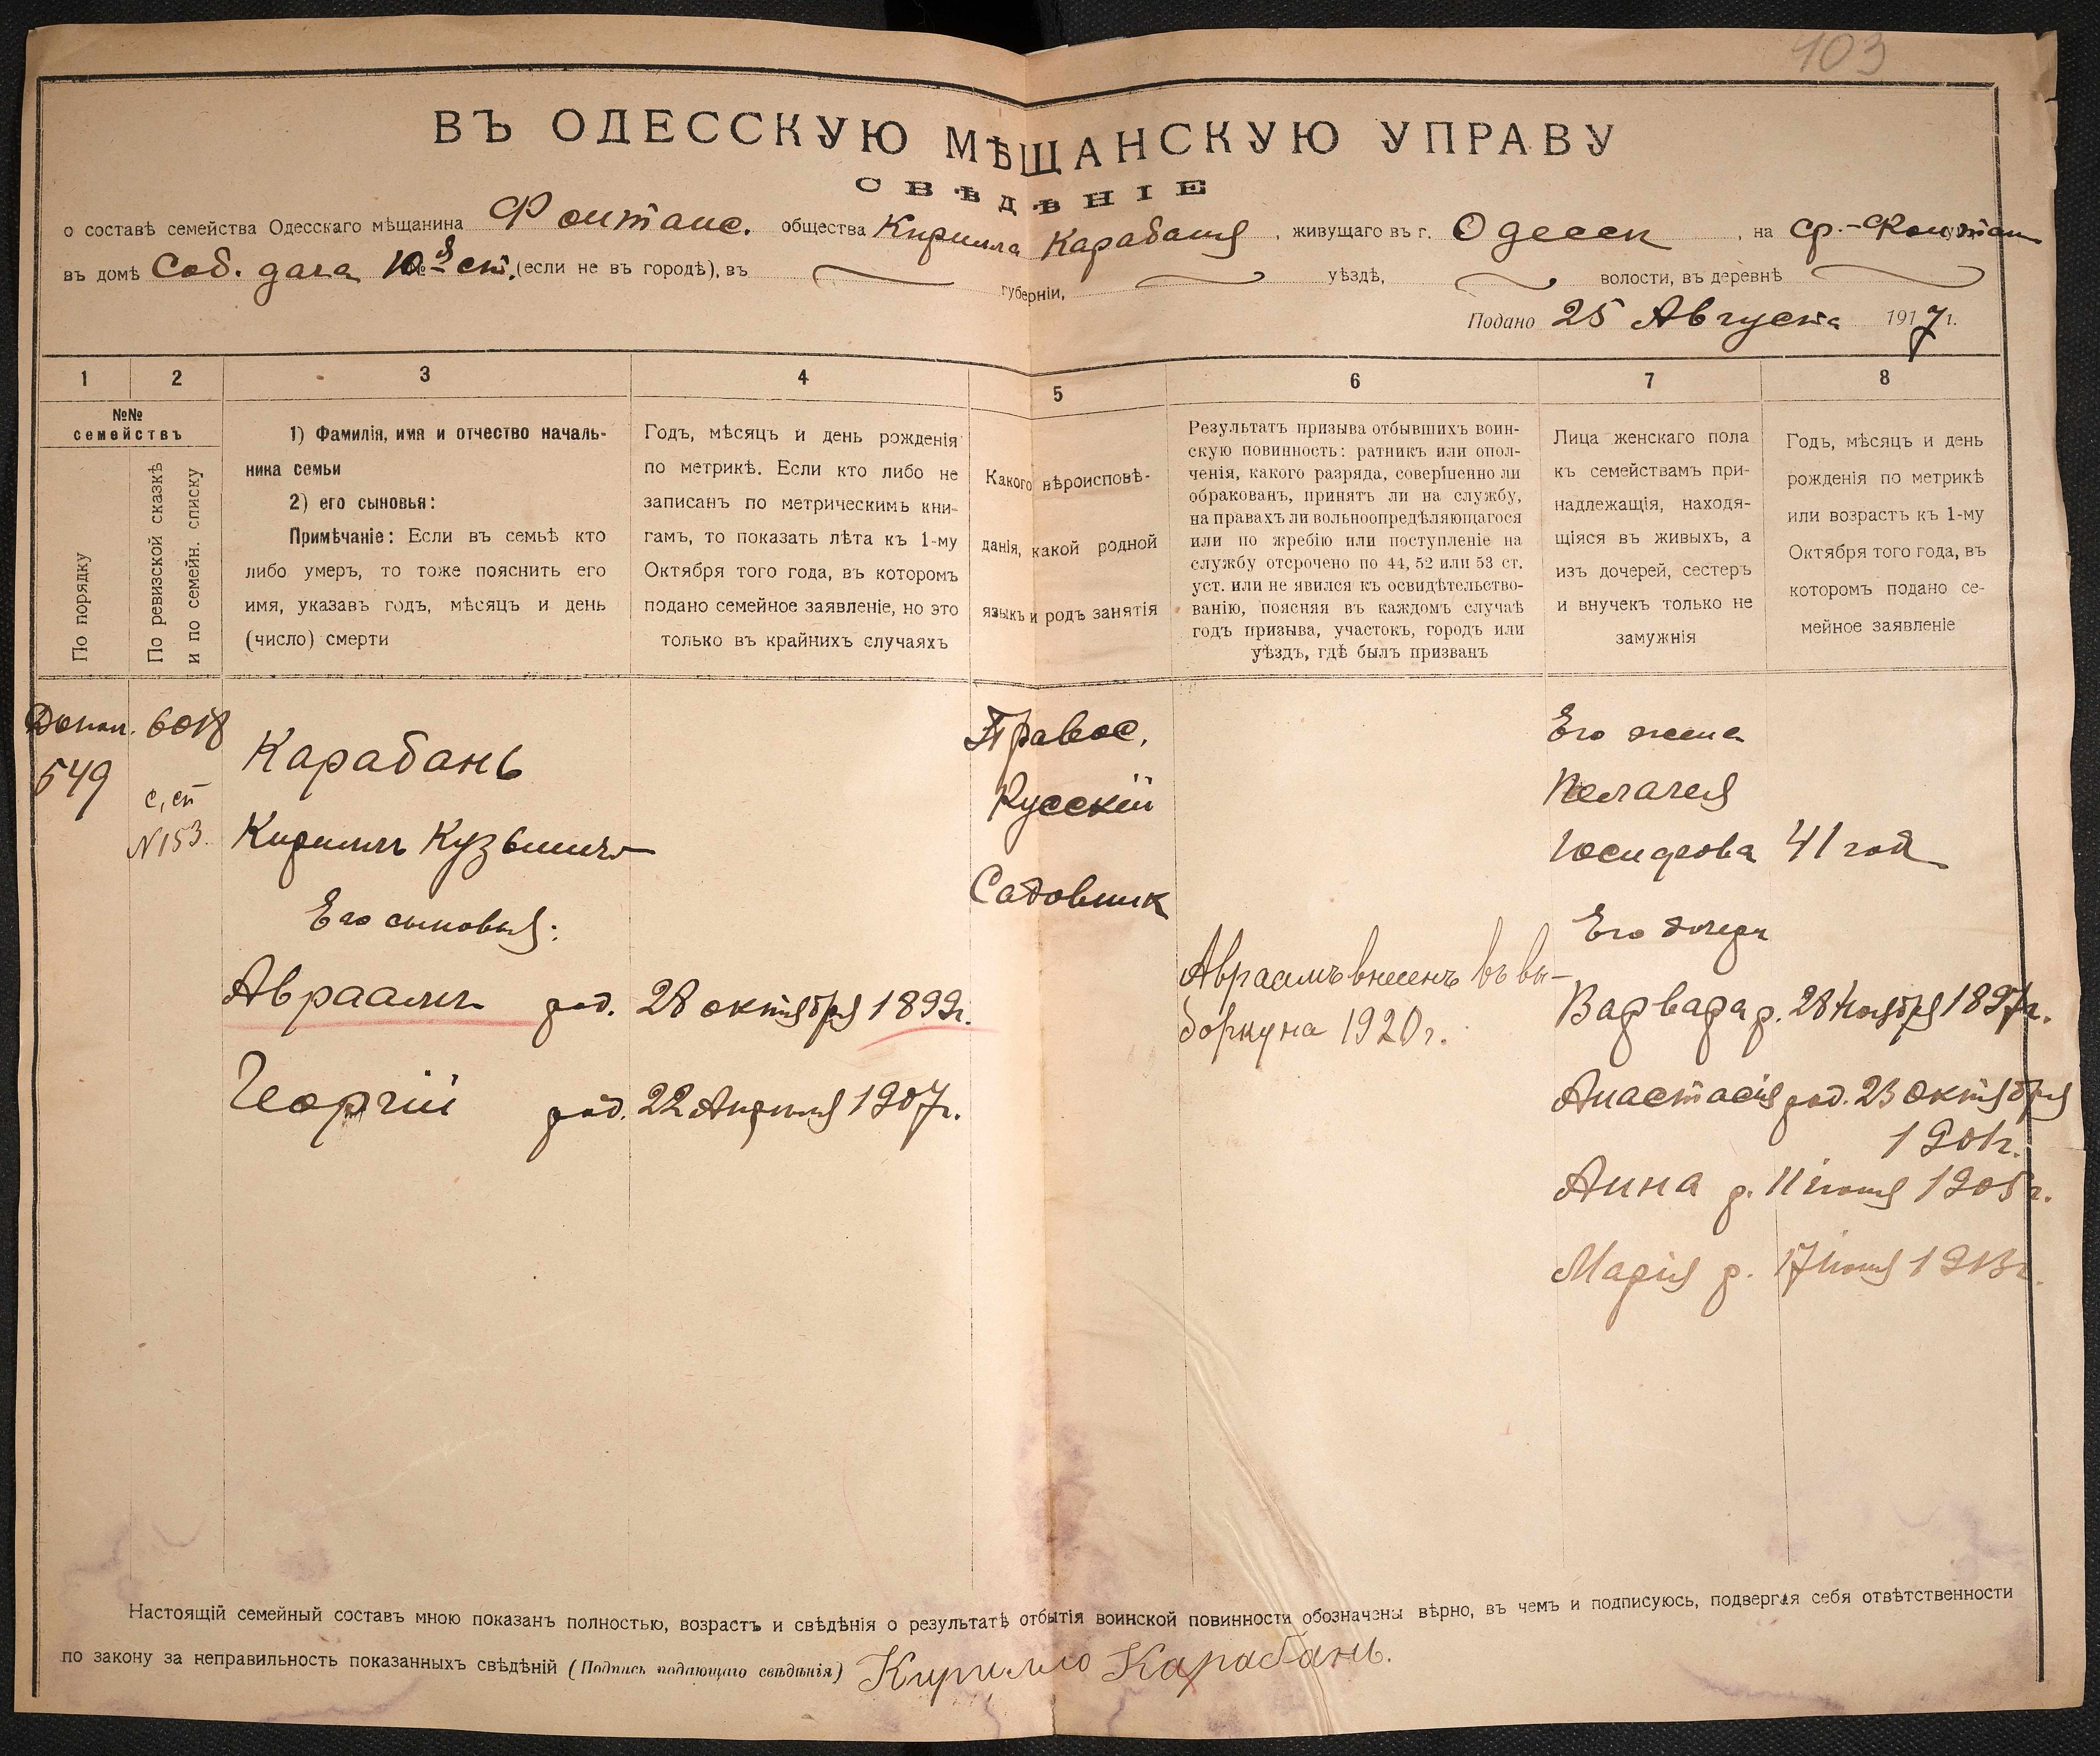 403
ВЪ ОДЕССКУЮ МѢЩАНСКУЮ УПРАВУ
СВѢДѢНІЕ
о составѣ семейства Одесскаго мѣщанина Фонтанс. общества Кирилла Карабаня, живущаго въ г. Одессѣ, на Ср.-Фонтан
въ домѣ Соб. дача № 10-я ст. (если не въ городѣ), въ губерніи, уѣздѣ, волости, въ деревнѣ
Подано 25 Августа 1917 г.
1 2 3 4 5 6 7 8
№№
семействъ
По порядку
По ревизской сказкѣ
и по семейн. списку
1) Фамилія, имя и отчество началь-
ника семьи
2) его сыновья:
Примѣчаніе: Если въ семьѣ кто
либо умеръ, то тоже пояснить его
имя, указавъ годъ, мѣсяцъ и день
(число) смерти
Годъ, мѣсяцъ и день рожденія
по метрикѣ. Если кто либо не
записанъ по метрическимъ кни-
гамъ, то показать лѣта къ 1-му
Октября того года, въ которомъ
подано семейное заявленіе, но это
только въ крайнихъ случаяхъ
Какого вѣроисповѣ-
данія, какой родной
языкъ и родъ занятія
Результатъ призыва отбывшихъ воин-
скую повинность: ратникъ или опол-
ченія, какого разряда, совершенно ли
обракованъ, принятъ ли на службу,
на правахъ ли вольноопредѣляющагося
или по жребію или поступленіе на
службу отсрочено по 44, 52 или 53 ст.
уст. или не явился къ освидѣтельство-
ванію, поясняя въ каждомъ случаѣ
годъ призыва, участокъ, городъ или
уѣздъ, гдѣ былъ призванъ
Лица женскаго пола
къ семействамъ при-
надлежащія, находя-
щіяся въ живыхъ, а
изъ дочерей, сестеръ
и внучекъ только не
замужнія
Годъ, мѣсяцъ и день
рожденія по метрикѣ
или возрастъ къ 1-му
Октября того года, въ
которомъ подано се-
мейное заявленіе
Допол.
549
6018
с, сп
N 153.
Карабань
Кириллъ Кузьмичъ
Его сыновья:
Авраамъ род. 28 октября 1899 г.
Георгій род. 22 Апреля 1907 г.
Правос.
Русскій
Садовник
Авраамъ внесенъ въ вы-
борку на 1920 г.
Его жена
Пелагея
Іосифова 41 год
Его дочери
Варвара р. 28 Ноября 1897 г.
Анастасія род. 23 октября
1901 г.
Анна р. 11 іюня 1905 г.
Марія р. 17 іюня 1913 г.
Настоящій семейный составъ мною показанъ полностью, возрастъ и свѣдѣнія о результатѣ отбытія воинской повинности обозначены вѣрно, въ чемъ и подписуюсь, подвергая себя отвѣтственности
по закону за неправильность показанныхъ свѣдѣній (Подпись подающаго свѣдѣнія) Кирилло Карабань.